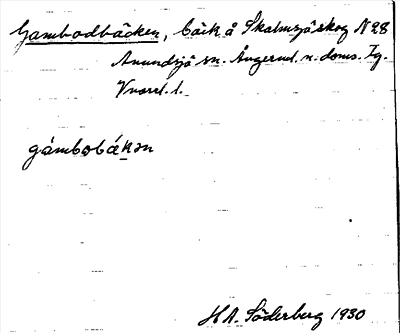 Gambodbäcken, bäck å Skalmsjöskog N28
Anundsjö sn. Ångerml. n. doms. Tg.
Vnorrl. l.
gámbobákən
H.A. Söderberg 1930